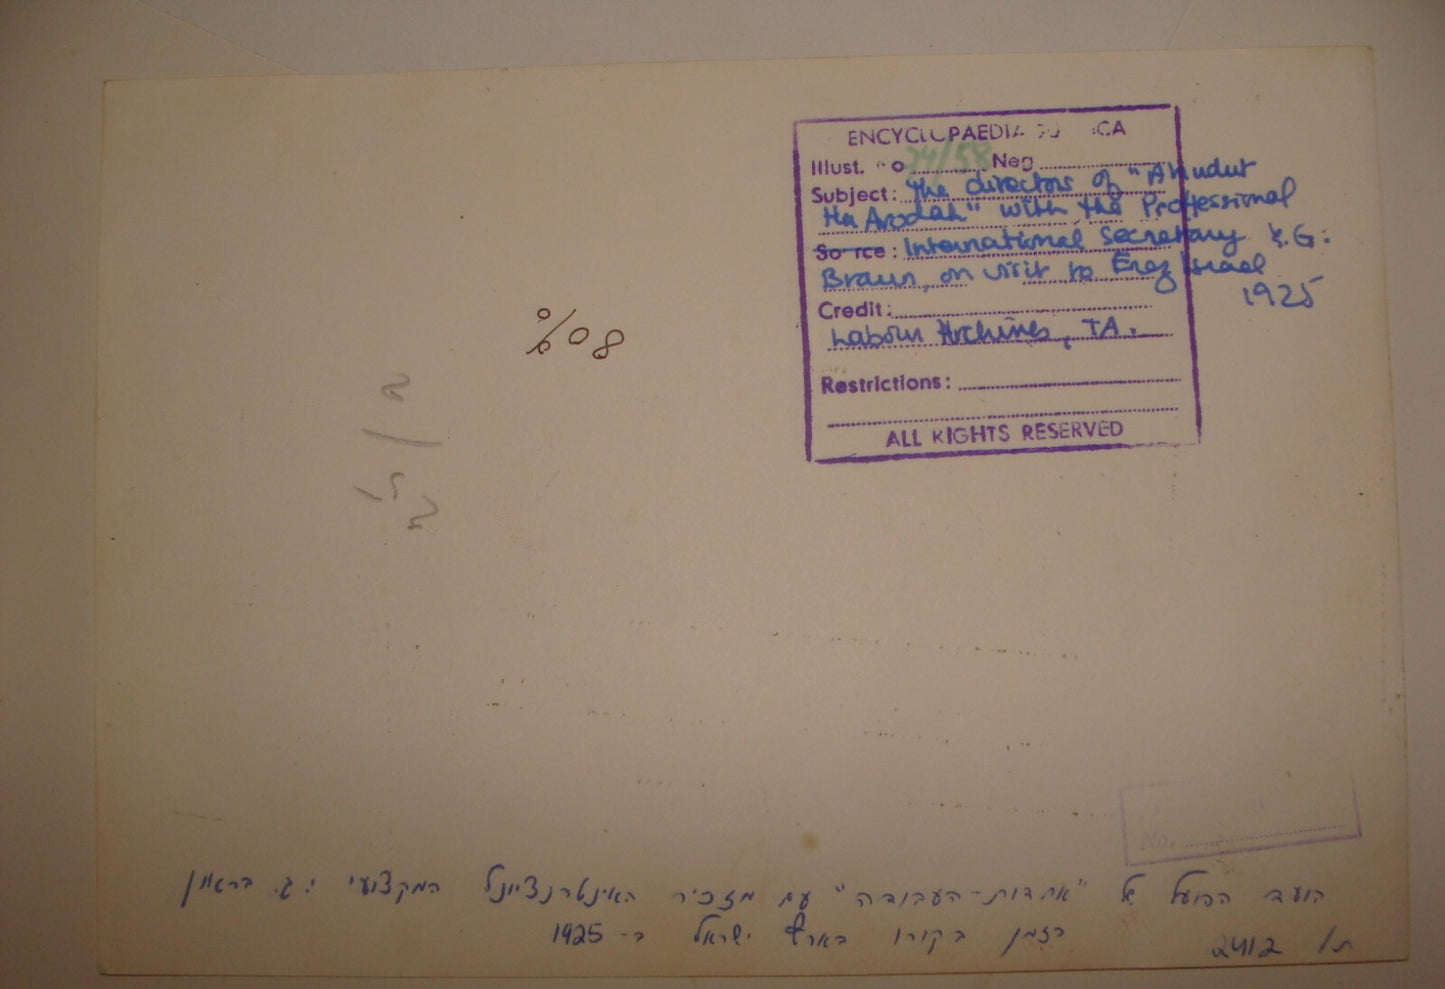 ENCYCLOPAEDIA JUDAICA
Illust. No 74/58 Neg
Subject: The directors of "Ahudut
Ha Avodah" with the Professional
Source: International Secretary Y.G.
Braun, on visit to Erez Israel
1925
Credit:
Labour Archives, TA.
Restrictions:
ALL RIGHTS RESERVED
80%
No.
הועד הפועל של "אחדות-העבודה" עם מזכיר האינטרנציונל המקצועי י.ג. בראון
בזמן בקורו בארץ ישראל ב-1925
ת/ 2412